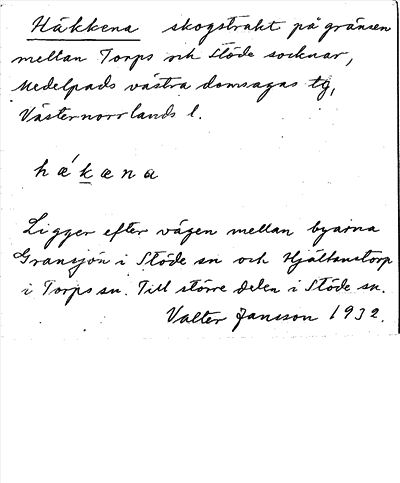 Häkkena skogstrakt på gränsen
mellan Torps och Stöde socknar,
Medelpads västra domsagas tg,
Västernorrlands l.
hǽkæna
Ligger efter vägen mellan byarna
Gransjön i Stöde sn och Hjältanstorp
i Torps sn. Till större delen i Stöde sn.
Valter Jansson 1932.